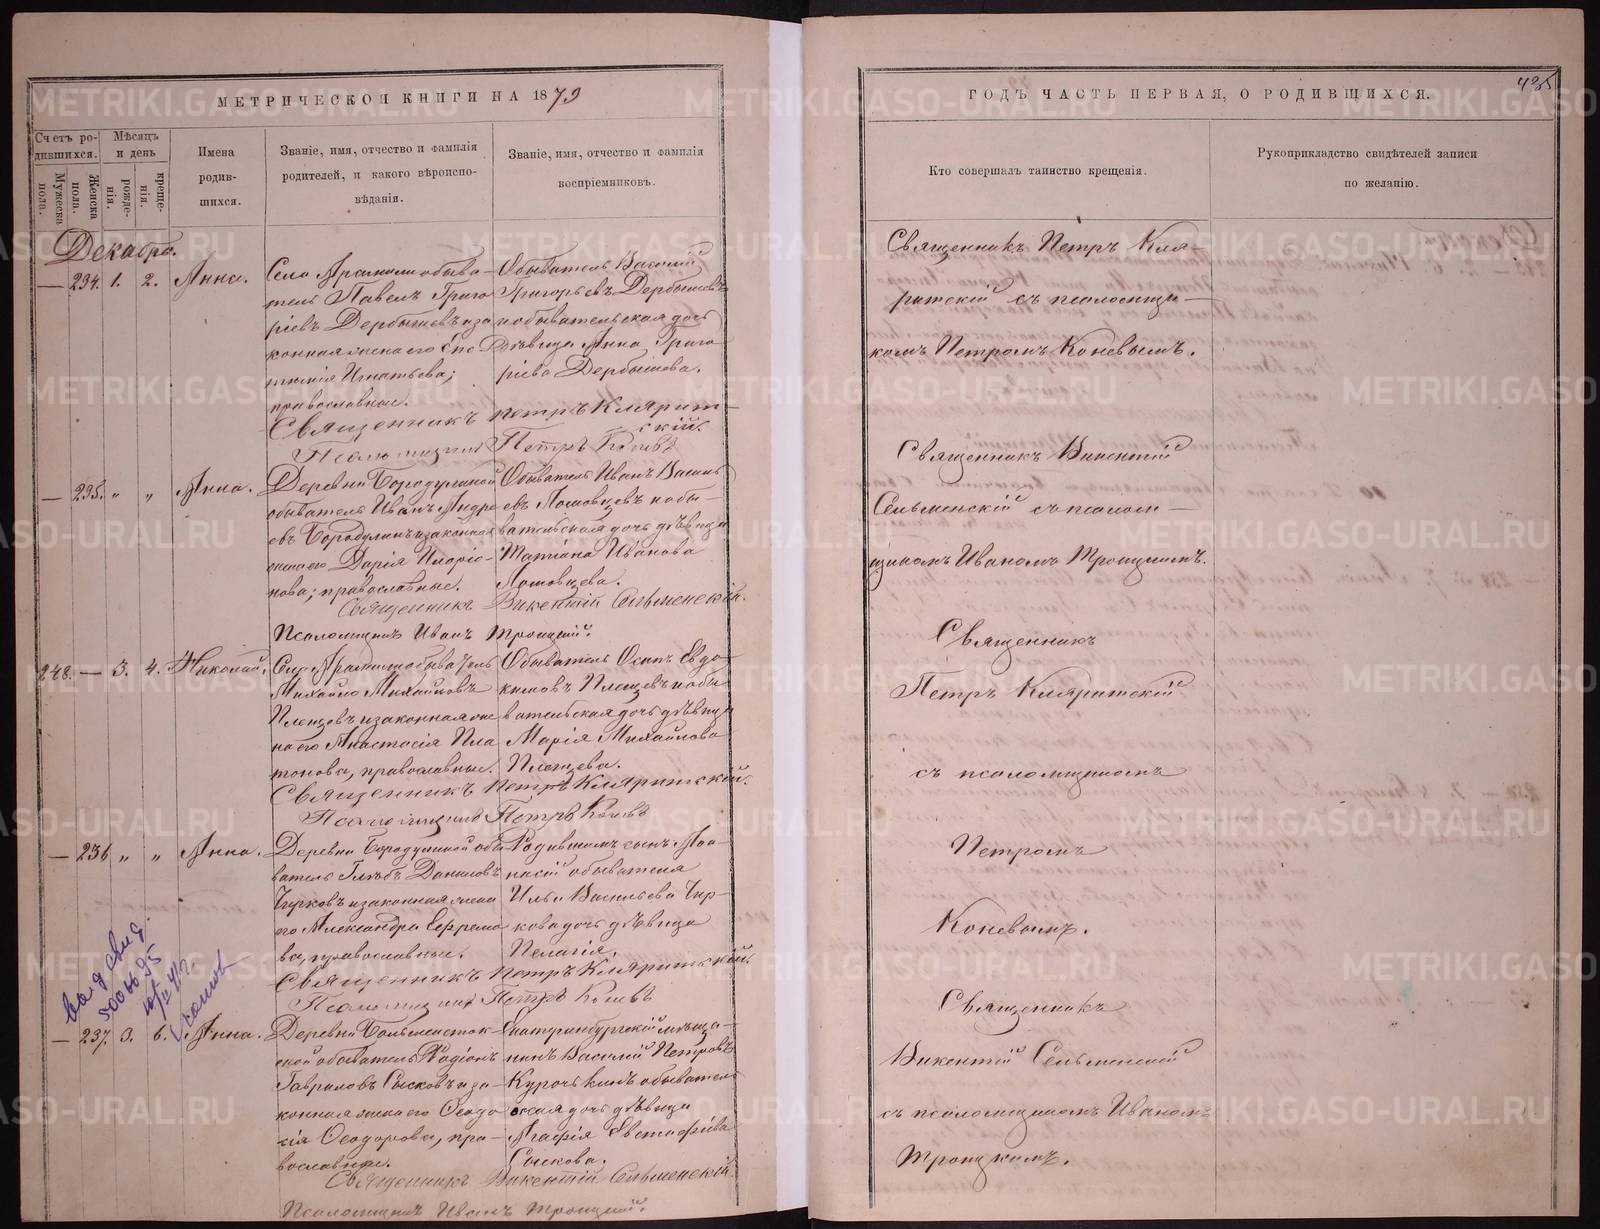 МЕТРИЧЕСКОЙ КНИГИ НА 1879
Счетъ родившихся.
Мужеска пола.
Женска пола.
Мѣсяцъ и день
рожденія.
крещенія.
Имена родившихся.
Званіе, имя, отчество и фамилія родителей, и какого вѣроисповѣданія.
Званіе, имя, отчество и фамилія воспріемниковъ.
Декабрь.
— 234. 1. 2. Анна.
Село Арамиля обыва-
тель Павелъ Григо
рьевъ Дербышевъ и за
конная жена его
Игнатьева;
православные.
Обыватель Василій
Григорьевъ Дербышевъ
и обывательская дочь
дѣвица Анна Григо
рьева Дербышова.
Священникъ Петръ Кляритскій.
Псаломщикъ Петръ Коневъ
— 235. „ „ Анна.
Деревни Бородулиной
обыватель Иванъ Андре
евъ Бородулинъ и законная
жена его Дарія Иларіо-
нова; православные.
Обыватель Иванъ Василь
евъ и обы-
вательская дочь дѣвица
Татіана Иванова
Священникъ Викентій Сельменскій.
Псаломщикъ Иванъ Троицкій.
248. — 3. 4. Николай.
Село Арамили обыватель
Михайло Михайловъ
Плещовъ и законная же
на его Анастасія Пла
тонова, православные.
Обыватель Осипъ Евдо-
кимовъ Плещевъ и обы
вательская дочь дѣвица
Марія Михайлова
Плещева.
Священникъ Петръ Кляритскій.
Псаломщикъ Петръ Коневъ
— 236 „ „ Анна.
Деревни Бородулиной обы-
ватель Глѣбъ Даниловъ
Чирковъ и законная жена
его Александра Ефремо
ва, православные.
обывателя
Ильи Васильева Чир-
кова дочь дѣвица
Пелагія.
Священникъ Петръ Кляритскій.
Псаломщикъ Петръ Коневъ
— 237. 3. 6. Анна.
Деревни Большеисток-
ской обыватель Родіонъ
Гавриловъ Сысковъ и за-
конная жена его Ѳеодо
сія Ѳеодорова, пра-
вославные.
Екатеринбургскій мѣща-
нинъ Василій Петровъ
Курочкинъ и обыватель
ская дочь дѣвица
Агафія Евстафіева
Сыскова.
Священникъ Викентій Сельменскій.
Псаломщикъ Иванъ Троицкій.
435
ГОДЪ ЧАСТЬ ПЕРВАЯ, О РОДИВШИХСЯ.
Кто совершалъ таинство крещенія.
Рукоприкладство свидѣтелей записи по желанію.
Священникъ Петръ Кля-
ритскій съ псаломщи-
комъ Петромъ Коневымъ.
Священникъ Викентій
Сельменскій съ псалом-
щикомъ Иваномъ Троицкимъ.
Священникъ
Петръ Кляритскій
съ псаломщикомъ
Петромъ
Коневымъ.
Священникъ
Викентій Сельменскій
съ псаломщикомъ Иваномъ
Троицкимъ.
METRIKI.GASO-URAL.RU